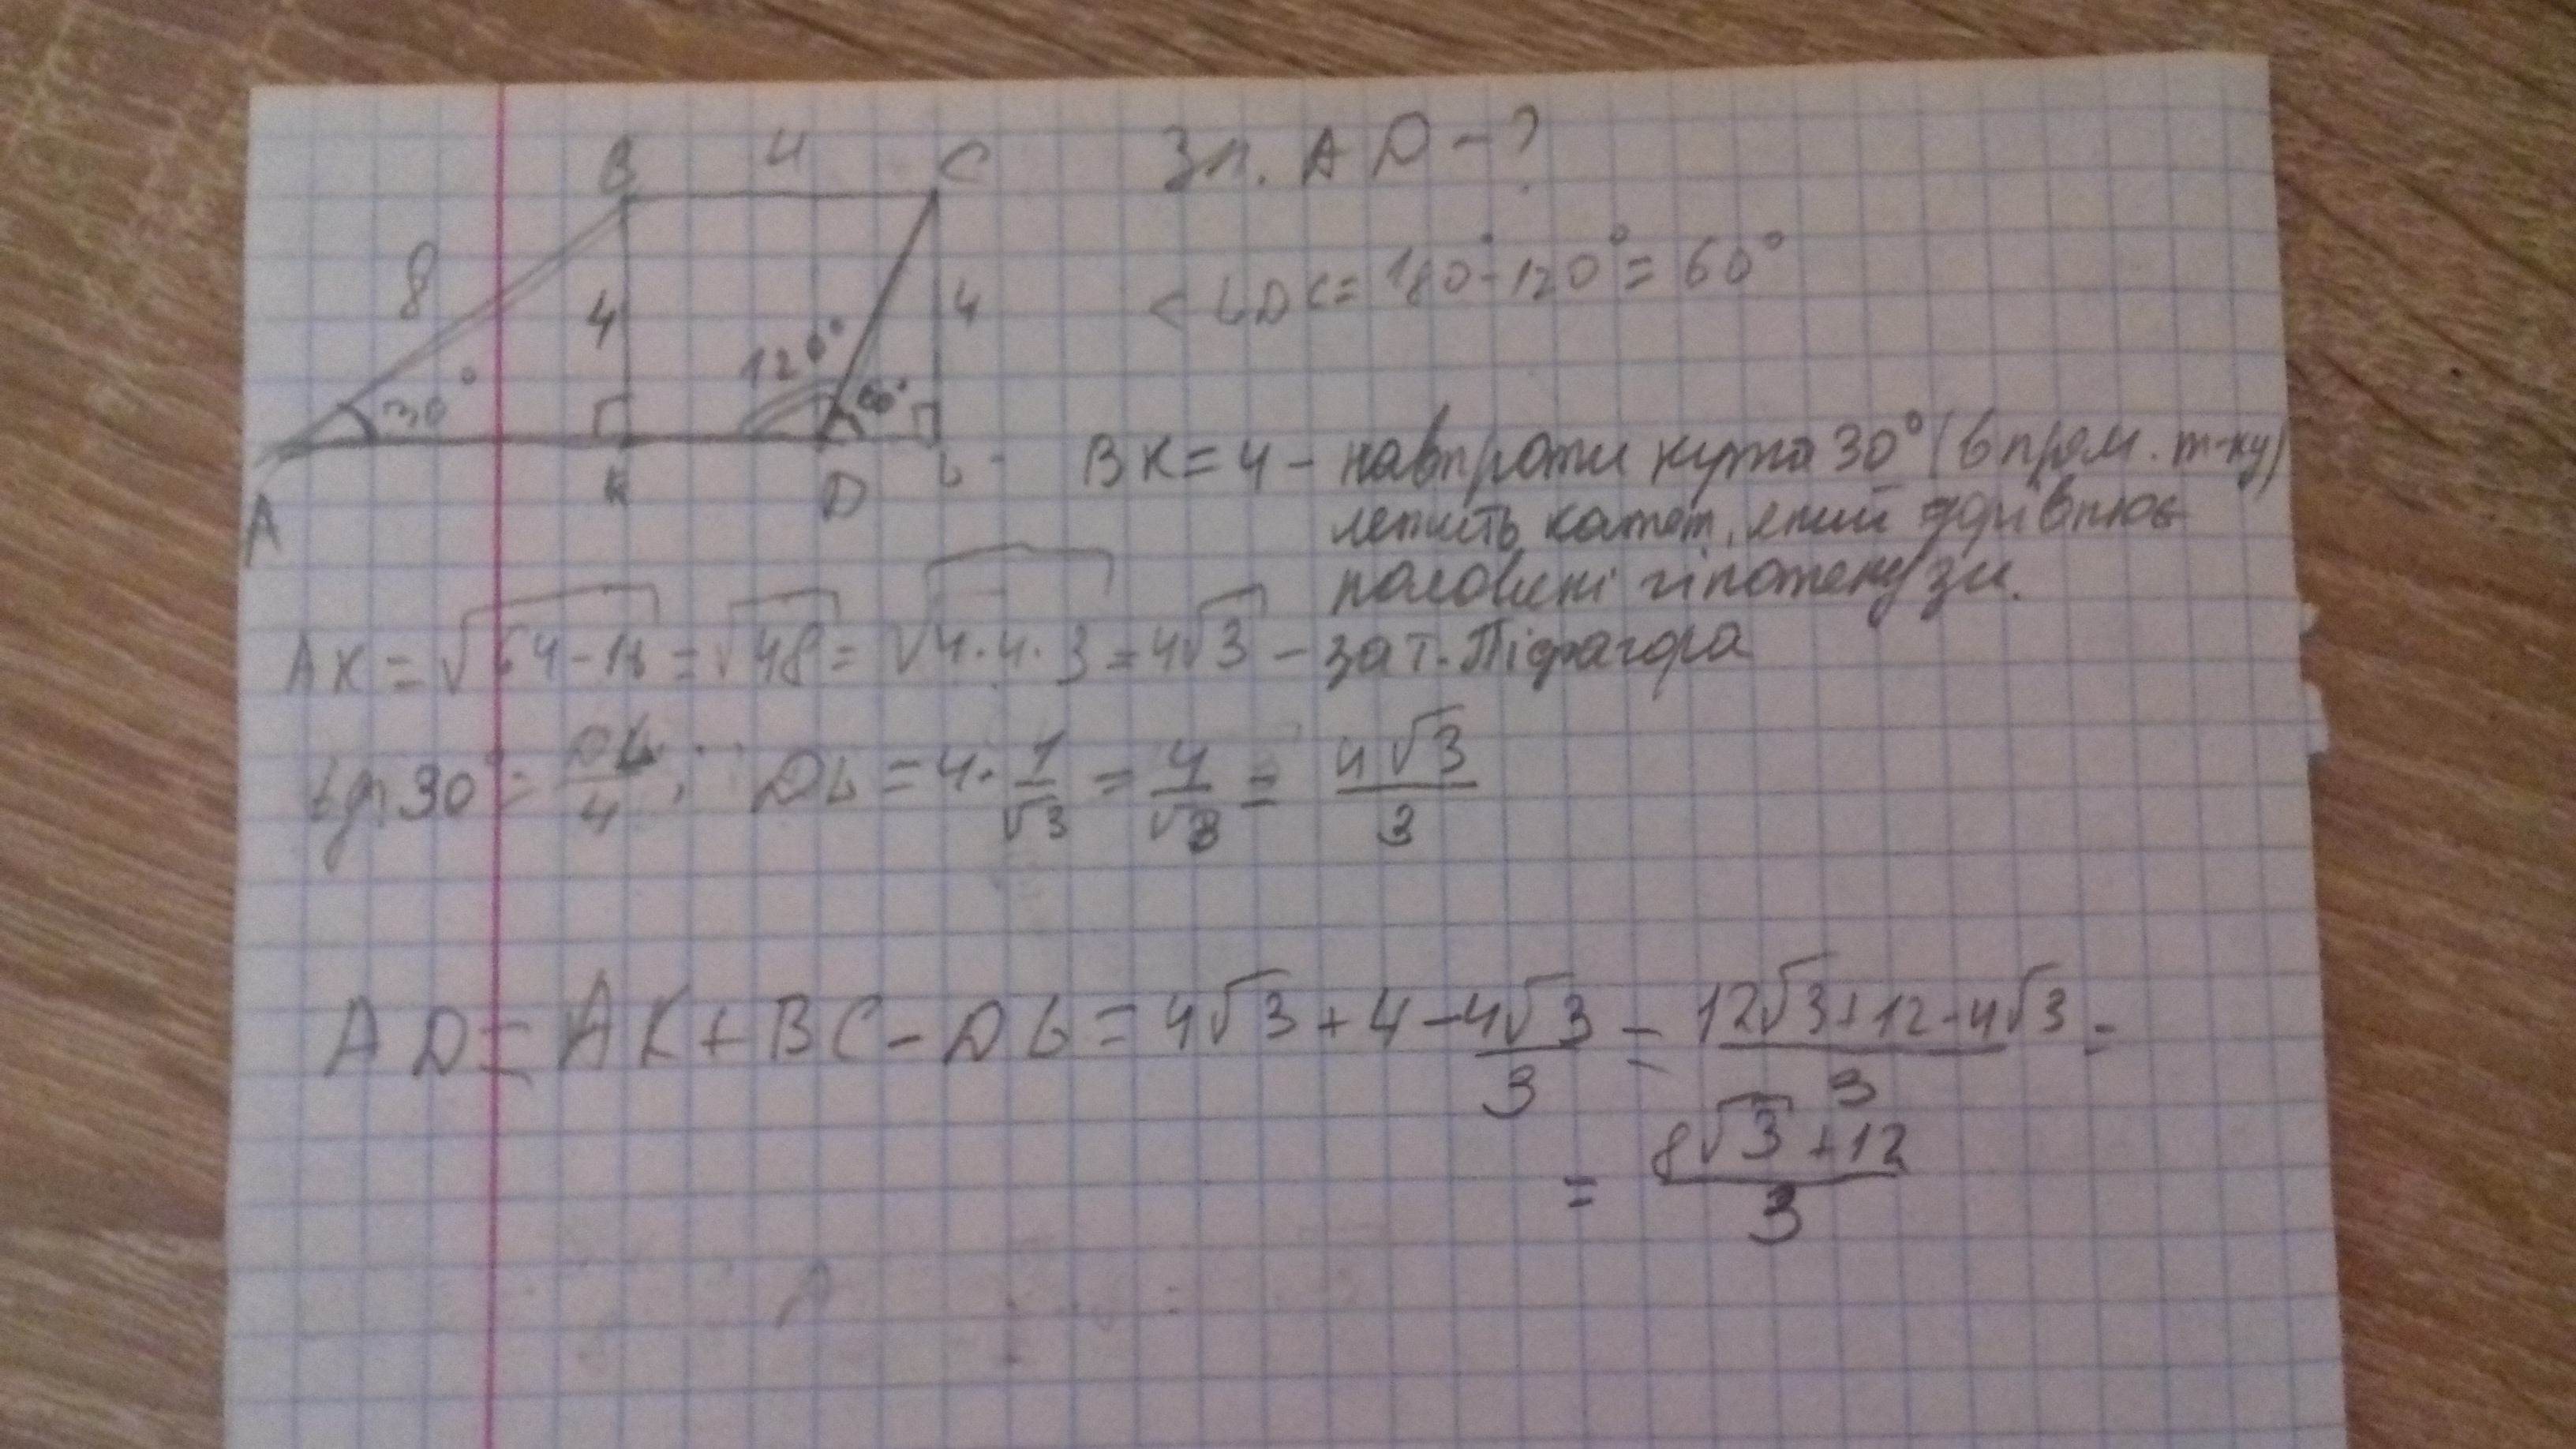 B 4 C
8 4 4
30° 120° 60°
A K D L
Зн. AD - ?
< LDC = 180° - 120° = 60°
BK = 4 - навпроти кута 30° (в прям. т-ку)
лежить катет, який дорівнює
половині гіпотенузи.
AK = √64-16 = √48 = √4·4·3 = 4√3 - за т. Піфагора
tg 30° = DL/4; DL = 4 · 1/√3 = 4/√3 = 4√3/3
AD = AK + BC - DL = 4√3 + 4 - 4√3/3 = 12√3+12-4√3/3 =
= 8√3+12/3